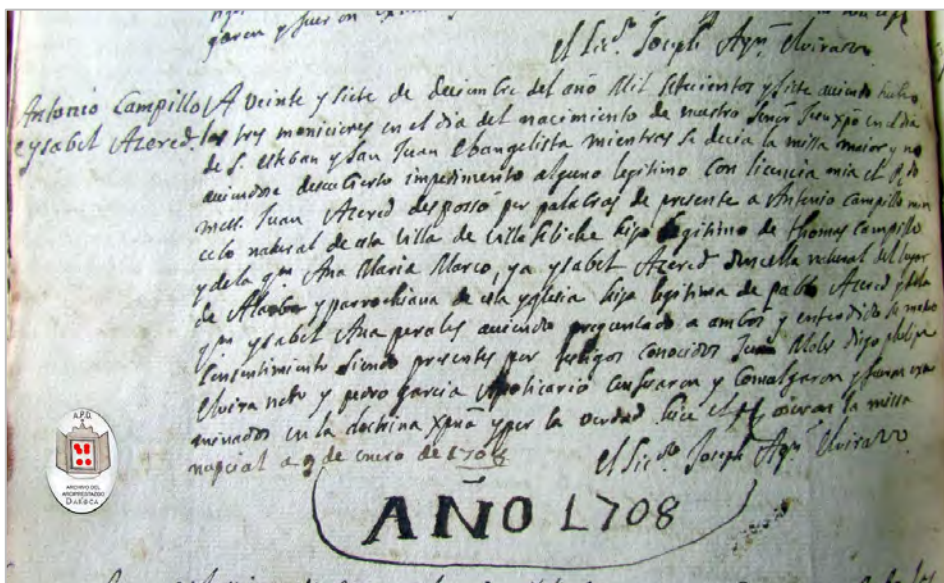 garon y fueron exami
el Lic.do Joseph Agn. Elvira
Antonio Campillo
e ysabel Azered.
A veinte y siete de deciembre del año Mil setecientos y siete aviendo hecho
las tres moniciones en el dia del nacimiento de nuestro Señor Jesu xpō en el dia
de S. esteban y San Juan Ebangelista mientras se decia la missa maior y no
aviendose descubierto impedimento alguno legitimo con licencia mia el R.do
mss. Juan Azered desposó por palabras de presente a Antonio Campillo man
cebo natural de esta Villa de villafeliche hijo legitimo de thomas Campillo
y de la qm Ana Maria Marco, y a ysabel Azered doncella natural del lugar
de y parrochiana de esta yglesia hija legitima de pablo Azered y dela
qm ysabel Ana perales aviendo preguntado a ambos y entendido su mutuo
Consentimiento siendo presentes por testigos conocidos Juan diego phelipe
Elvira y pedro garcia Apoticario confesaron y Comulgaron y fueron exa
minados en la doctrina xpna y por la verdad hice el oieron la missa
nupcial a 9 de enero de 1708
el Lic.do Joseph Agn Elvira
AÑO 1708
A.P.D.
ARCHIVO DEL
ARCIPRESTAZGO
DAROCA